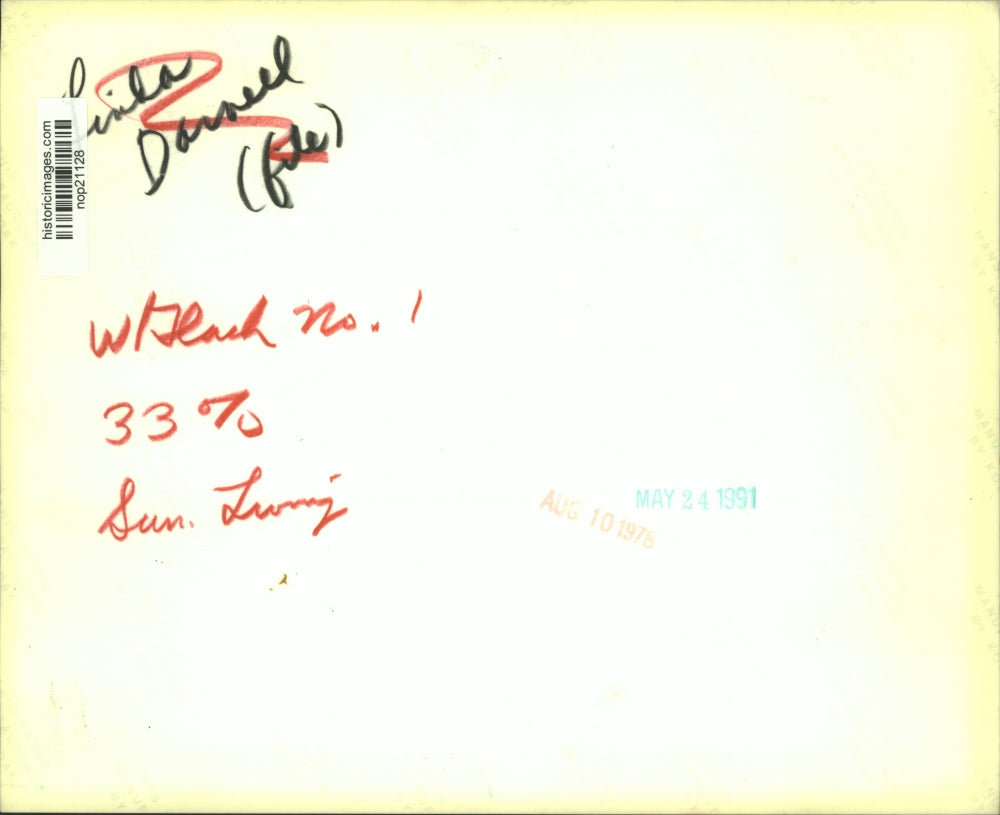 Linda
Darnell
(file)
historicimages.com
nop21128
No. 1
33%
Sun. Living
AUG 10 1978
MAY 24 1991